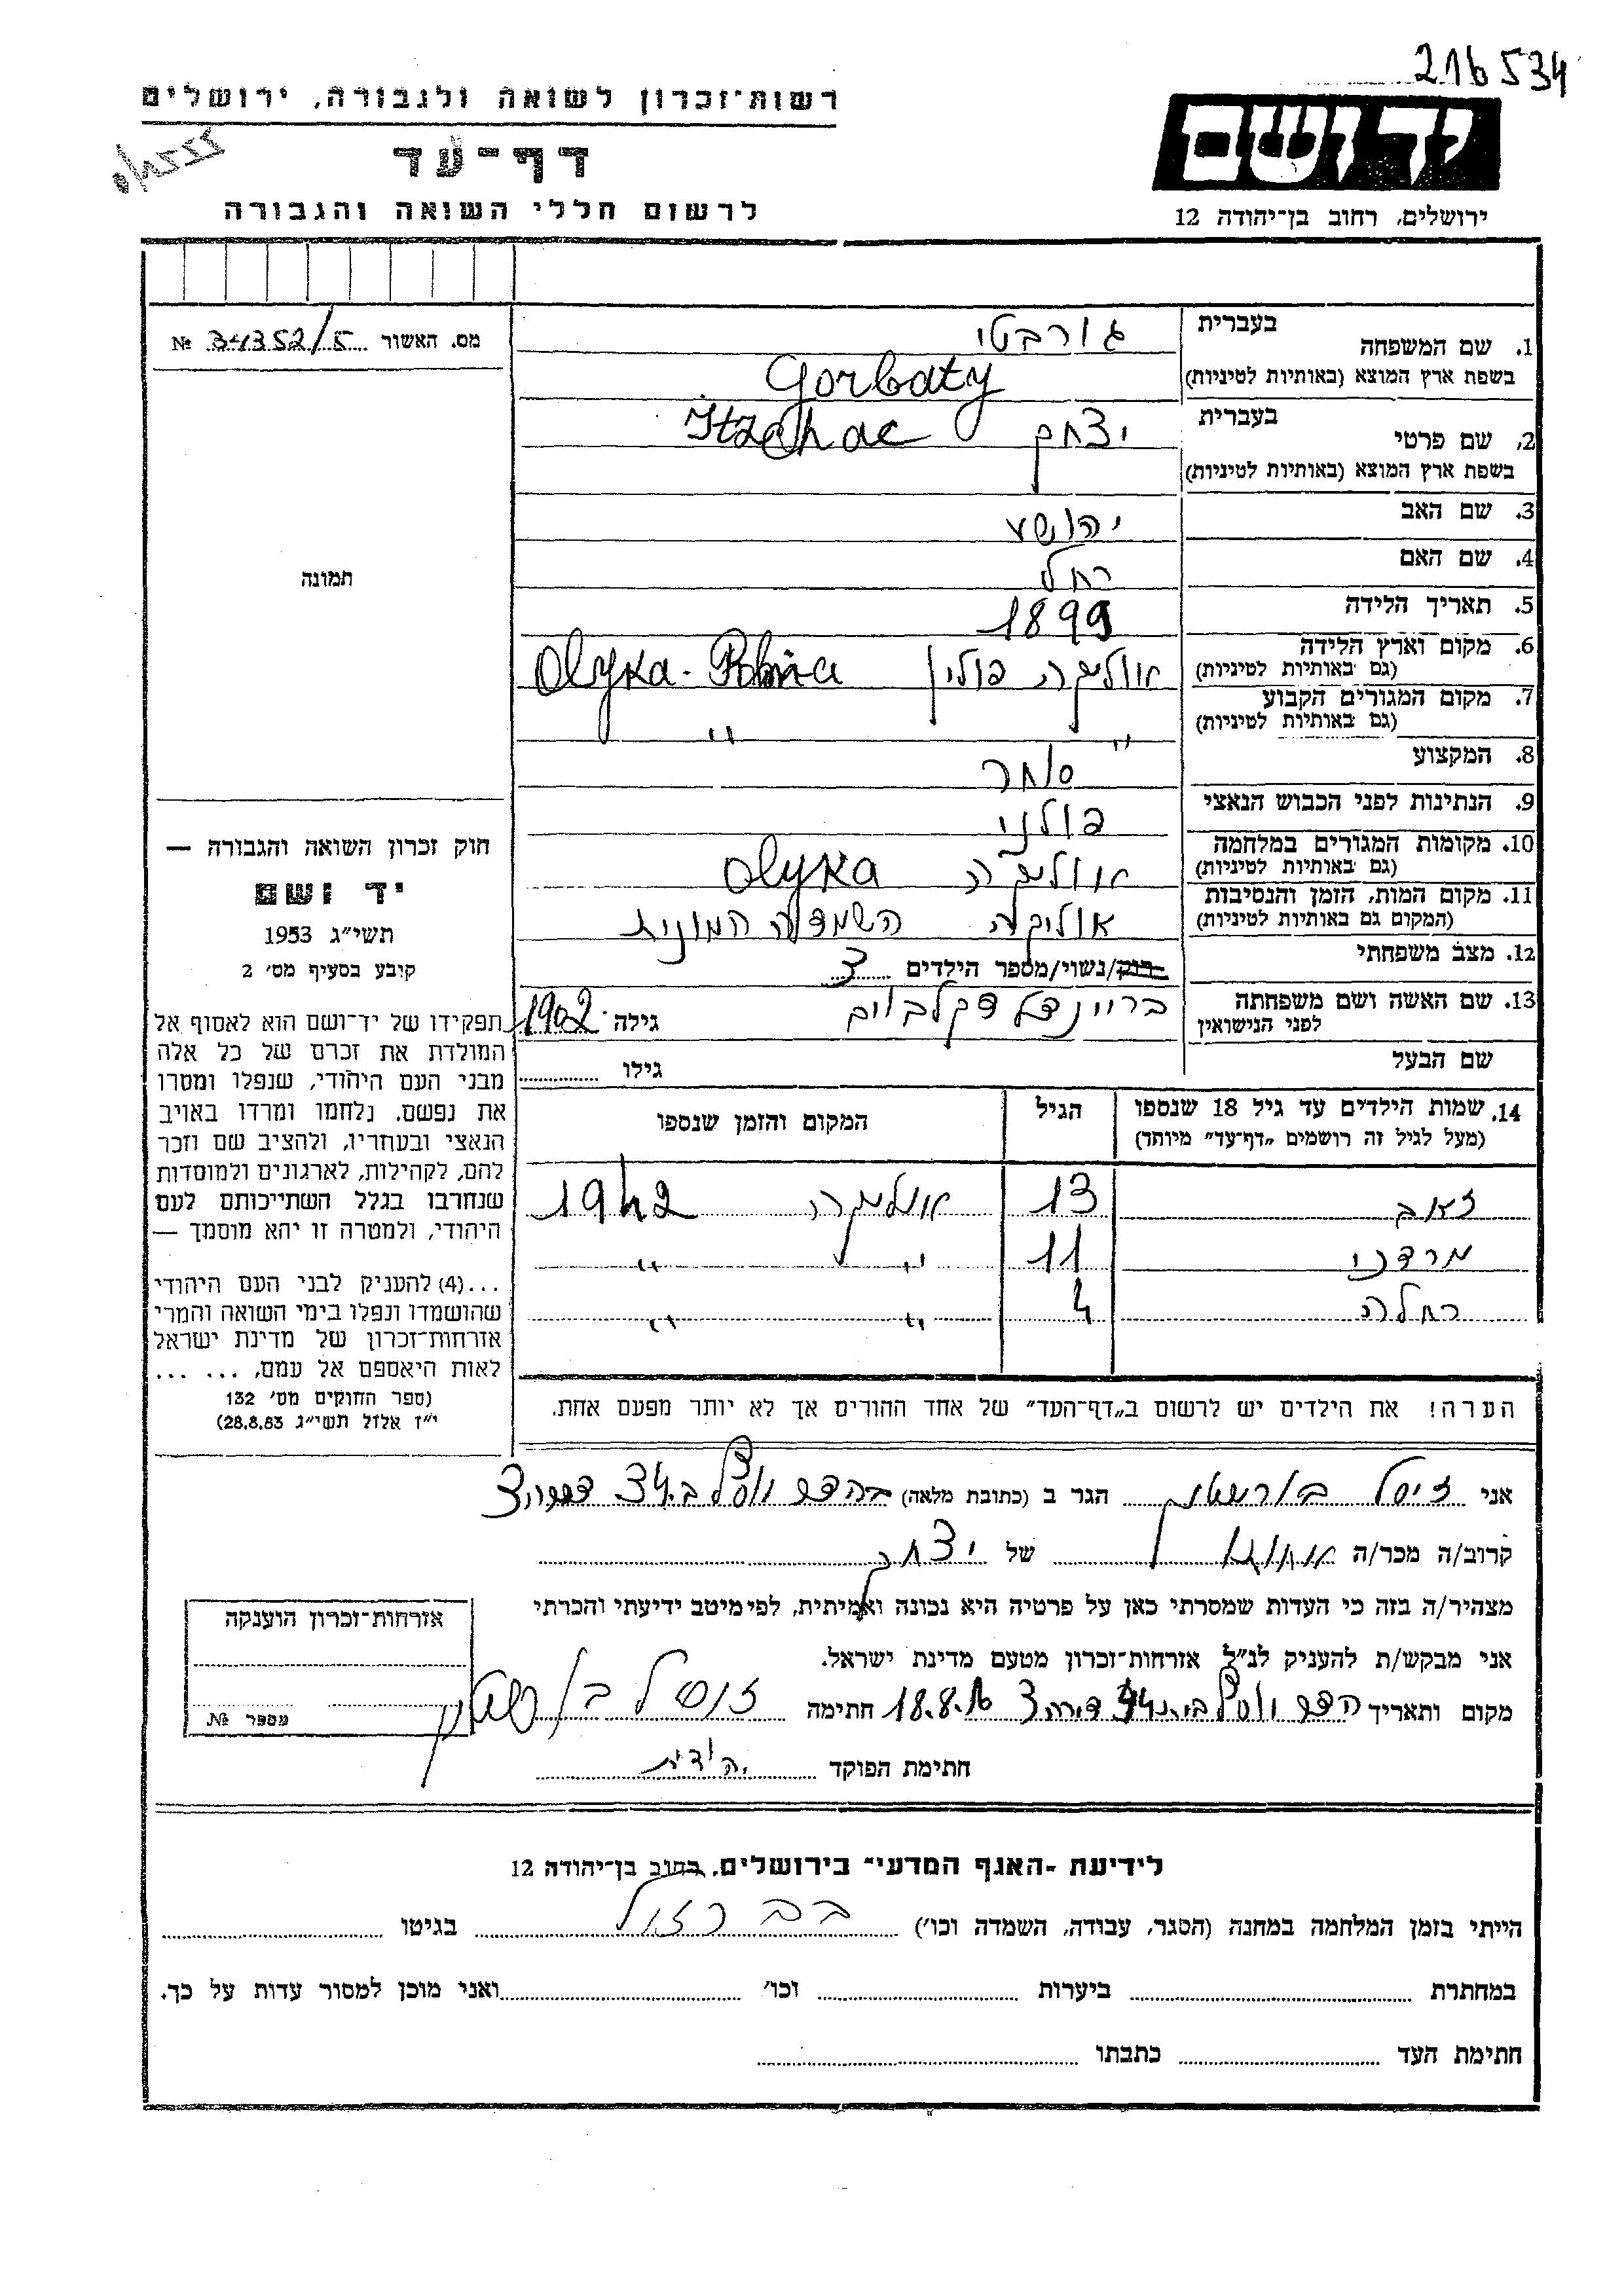 216534
רשות־זכרון לשואה ולגבורה, ירושלים
דף־עד
לרשום חללי השואה והגבורה
יד ושם
ירושלים, רחוב בן־יהודה 12
מס. האשור 34352/5 №
תמונה
1. שם המשפחה בעברית גורבטי
בשפת ארץ המוצא (באותיות לטיניות) Gorbaty
2. שם פרטי בעברית יצחק Itzchac
בשפת ארץ המוצא (באותיות לטיניות)
3. שם האב יהושע
4. שם האם רחל
5. תאריך הלידה 1899
6. מקום וארץ הלידה אוליקה פולין Olyka - Polnia
(גם באותיות לטיניות)
7. מקום המגורים הקבוע " "
(גם באותיות לטיניות)
8. המקצוע סוחר
9. הנתינות לפני הכבוש הנאצי פולני
10. מקומות המגורים במלחמה אוליקה Olyka
(גם באותיות לטיניות)
11. מקום המות, הזמן והנסיבות אוליקה השמדה המונית
(המקום גם באותיות לטיניות)
12. מצב משפחתי רווק/נשוי/מספר הילדים 3
13. שם האשה ושם משפחתה לפני הנישואין בריינדל גילה 1902
שם הבעל גילו
14. שמות הילדים עד גיל 18 שנספו הגיל המקום והזמן שנספו
(מעל לגיל זה רושמים „דף־עד” מיוחד)
זאב 13 אוליקה 1942
מרדכי 11 " "
רחלה 4 " "
הערה! את הילדים יש לרשום ב„דף־העד” של אחד ההורים אך לא יותר מפעם אחת.
חוק זכרון השואה והגבורה —
יד ושם
תשי״ג 1953
קובע בסעיף מס׳ 2
תפקידו של יד־ושם הוא לאסוף אל
המולדת את זכרם של כל אלה
מבני העם היהודי, שנפלו ומסרו
את נפשם, נלחמו ומרדו באויב
הנאצי ובעוזריו, ולהציב שם וזכר
להם, לקהילות, לארגונים ולמוסדות
שנחרבו בגלל השתייכותם לעם
היהודי, ולמטרה זו יהא מוסמך —
...(4) להעניק לבני העם היהודי
שהושמדו ונפלו בימי השואה והמרי
אזרחות־זכרון של מדינת ישראל
לאות היאספם אל עמם, ... ...
(ספר החוקים מס׳ 132
י״ז אלול תשי״ג 28.8.53)
אני זיסל בורשטין הגר ב (כתובת מלאה) 34 דירה 3
קרוב/ה מכר/ה של יצחק
מצהיר/ה בזה כי העדות שמסרתי כאן על פרטיה היא נכונה ואמיתית, לפי מיטב ידיעתי והכרתי
אני מבקש/ת להעניק לנ״ל אזרחות־זכרון מטעם מדינת ישראל.
מקום ותאריך דירה 3 18.8. חתימה זיסל בורשטין
חתימת הפוקד יהודית
אזרחות־זכרון הוענקה
מספר №
לידיעת „האגף המדעי” בירושלים, רחוב בן־יהודה 12
הייתי בזמן המלחמה במחנה (הסגר, עבודה, השמדה וכו׳) בגיטו
במחתרת ביערות וכו׳ ואני מוכן למסור עדות על כך.
חתימת העד כתבתו